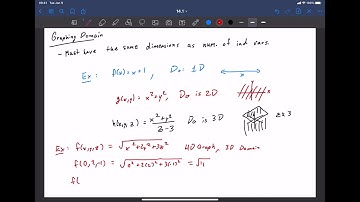 14.1
Graphing Domain
- Must have the same dimensions as num. of ind. vars.
Ex: f(x) = x+1, D is 1D
x
g(x,y) = x²+y² D is 2D
h(x,y,z) = x²+y² / z-3 D is 3D
z≠3
Ex: f(x,y,z) = √x²+2y²+3z² 4D Graph, 3D Domain
f(0,2,-1) = √0²+2(2)²+3(-1)² = √11
f(